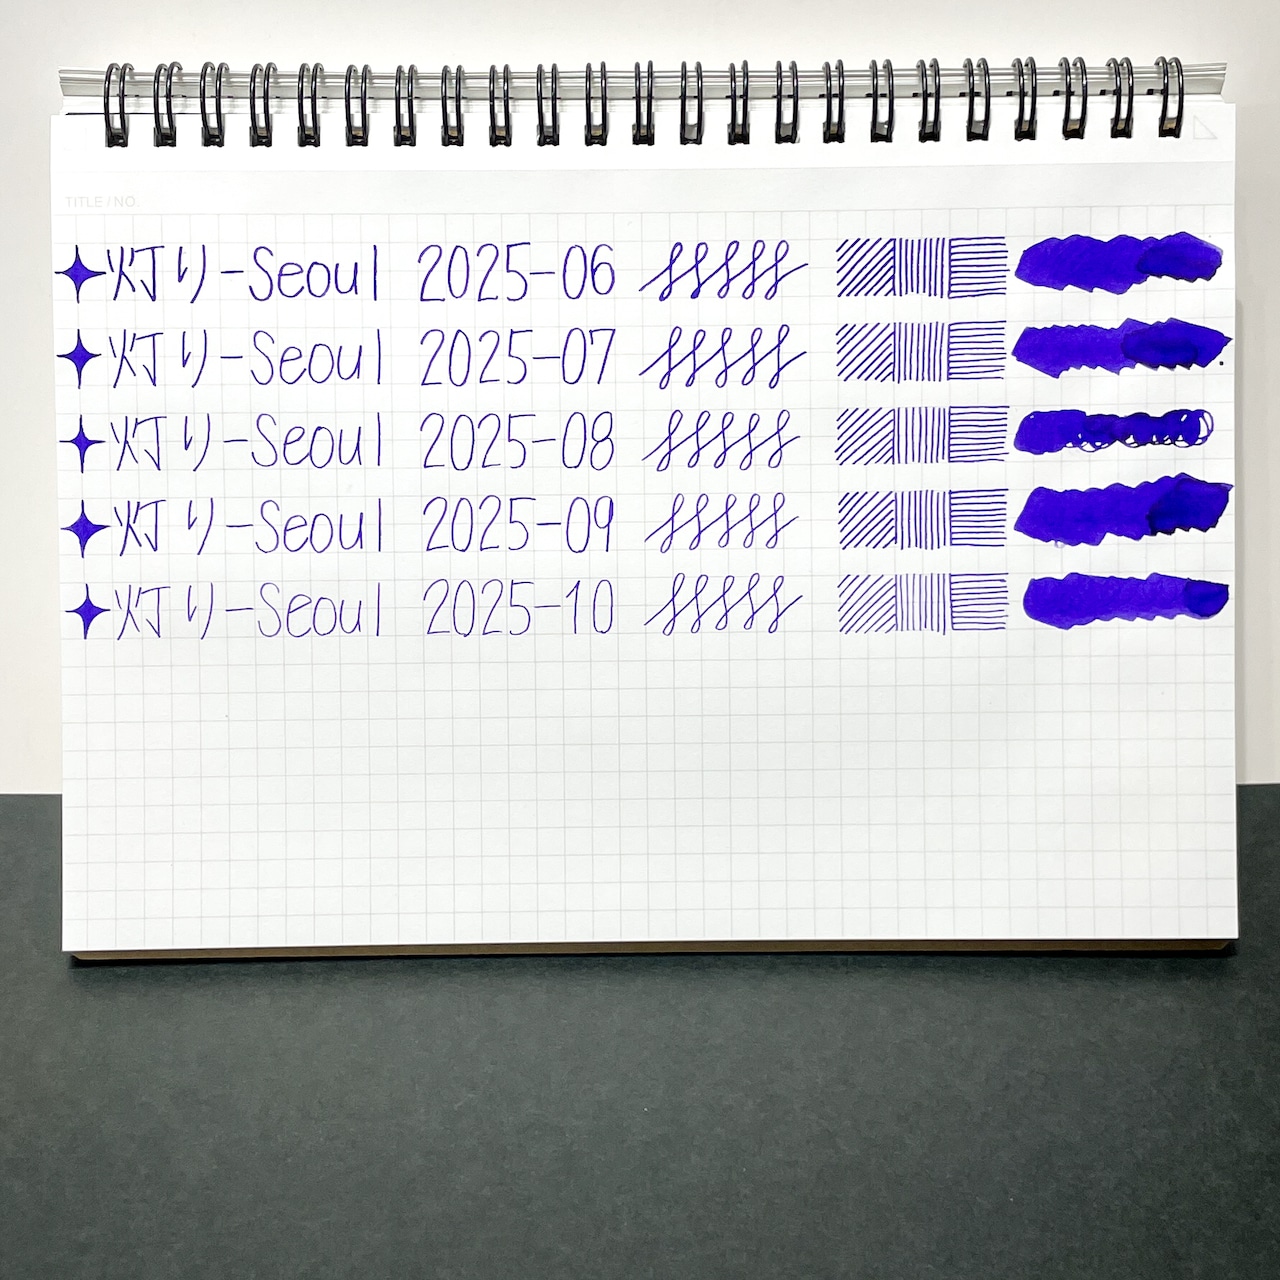 TITLE / NO.
✦灯り-Seoul 2025-06
✦灯り-Seoul 2025-07
✦灯り-Seoul 2025-08
✦灯り-Seoul 2025-09
✦灯り-Seoul 2025-10